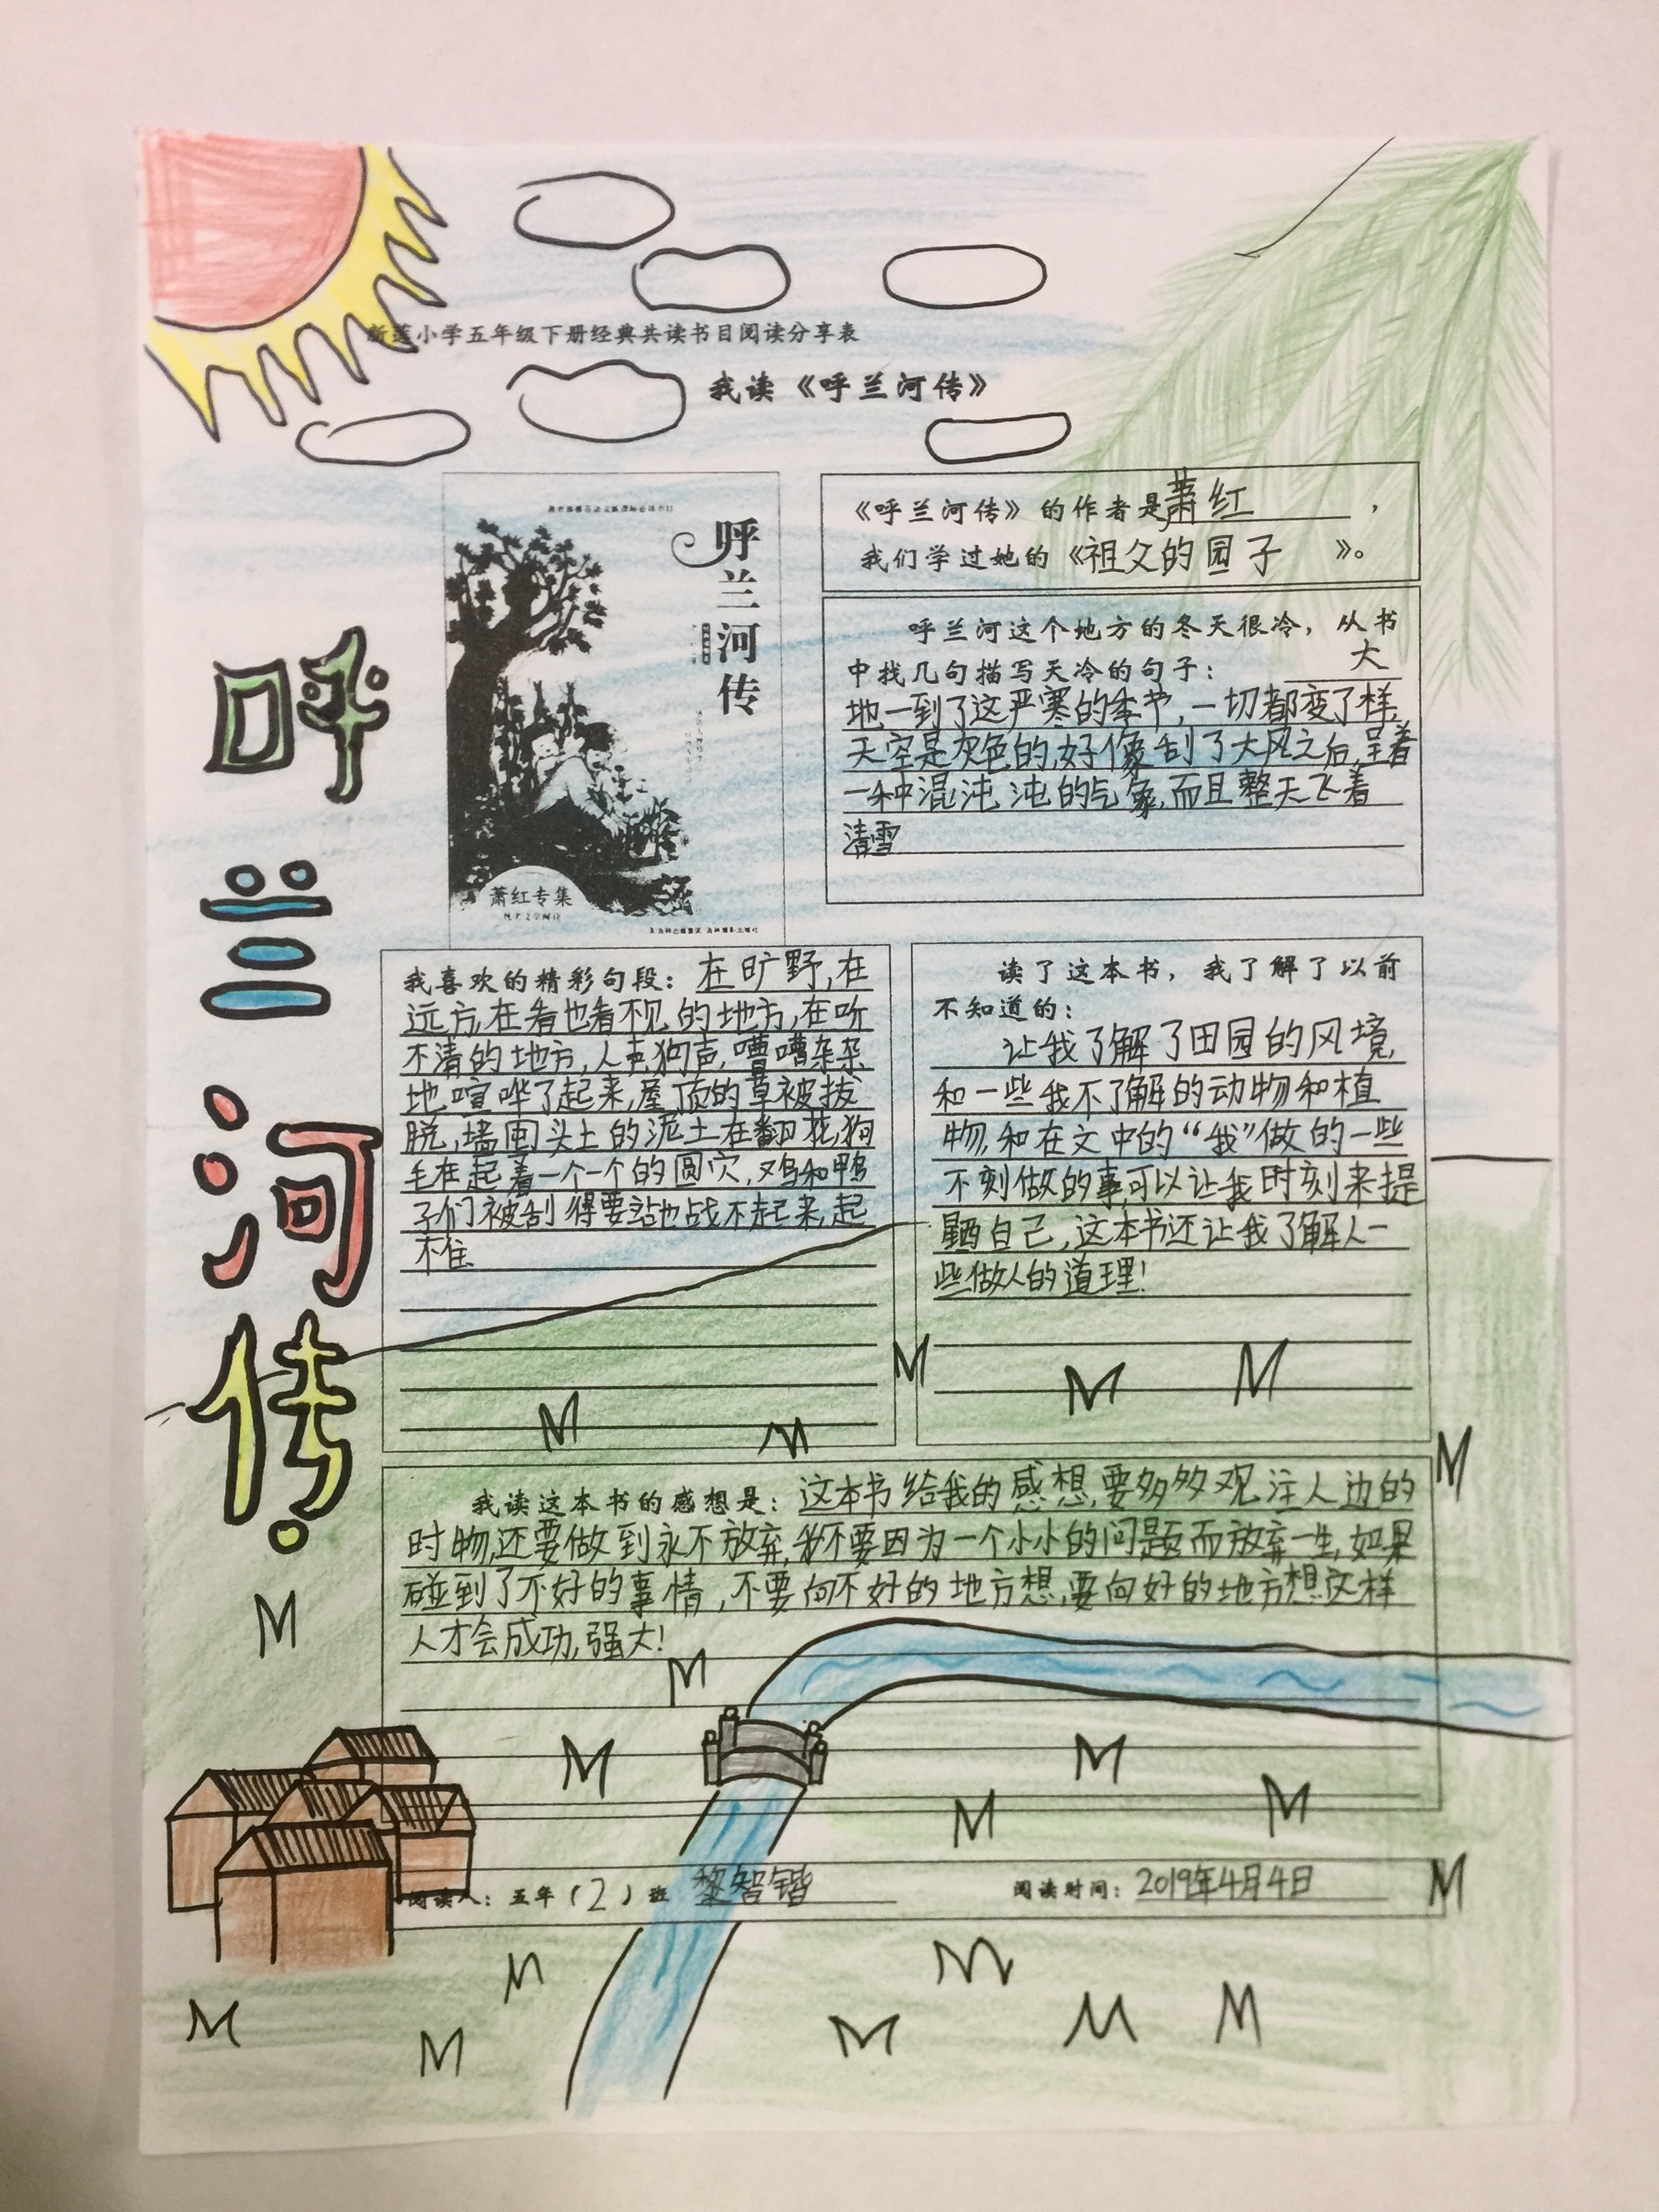 新莲小学五年级下册经典共读书目阅读分享表
我读《呼兰河传》
呼兰河传
呼兰河传
萧红专集
《呼兰河传》的作者是萧红，
我们学过她的《祖父的园子》。
呼兰河这个地方的冬天很冷，从书
中找几句描写天冷的句子：大
地一到了这严寒的季节,一切都变了样,
天空是灰色的,好像刮了大风之后,呈着
一种混沌沌的气象,而且整天飞着
清雪
我喜欢的精彩句段：在旷野,在
远方,在看也看不见的地方,在听
不清的地方,人声,狗声,嘈嘈杂杂
地喧哗了起来,屋顶的草被拔
脱,墙围头土的泥土在翻花,狗
毛在起着一个一个的圆穴,鸡和鸭
子们被刮得要站也战不起来,起
不住
读了这本书，我了解了以前
不知道的：
让我了解了田园的风境,
和一些我不了解的动物和植
物,和在文中的“我”做的一些
不刻做的事可以让我时刻来提
醒自己,这本书还让我了解人一
些做人的道理!
我读这本书的感想是：这本书给我的感想,要多多观注人边的
时物,还要做到永不放弃,不要因为一个小小的问题而放弃一生,如果
碰到了不好的事情,不要向不好的地方想,要向好的地方想这样
人才会成功,强大!
阅读人：五年（2）班 黎智锴 阅读时间：2019年4月4日